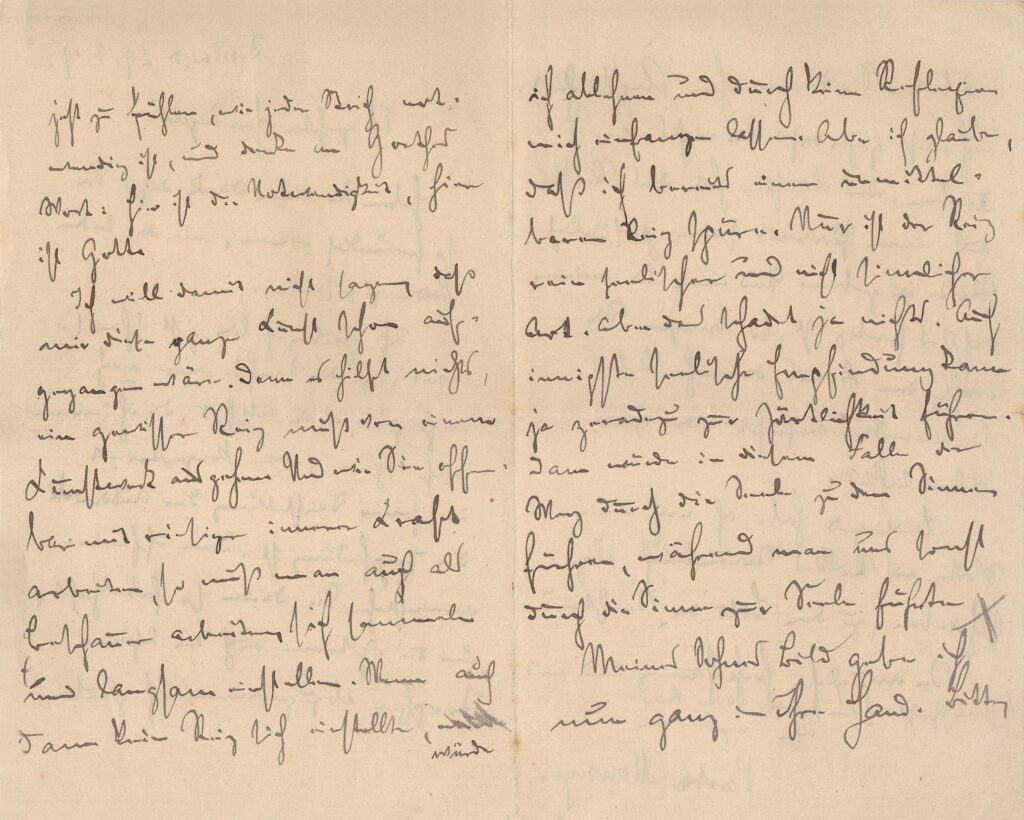 jetzt zu fühlen, wie jeder Strich not-
wendig ist, und denke an Goethes
Wort: hier ist die Notwendigkeit, hier
ist Gott.
Ich will damit nicht sagen, daß
mir diese ganze Kunst schon auf-
gegangen wäre. Denn es hilft nichts,
ein gewisser Reiz muß von einem
Kunstwerk ausgehen. Und wie Sie offen-
bar mit richtiger innerer Kraft
arbeiten, so muß man auch als
Beschauer arbeiten, sich sammeln
und langsam einstellen. Wenn auch
dann kein Reiz sich einstellte,
würde
ich ablehnen und durch keine Reflexion
mich einfangen lassen. Aber ich glaube,
daß ich bereits einen unmittel-
baren Reiz spüre. Nur ist der Reiz
rein seelischer und nicht sinnlicher
Art. Aber das schadet ja nichts. Auch
innigste seelische Empfindung kann
ja geradezu zur Zärtlichkeit führen.
Dann würde in diesem Falle der
Weg durch die Seele zu den Sinnen
führen, während man uns sonst
durch die Sinne zur Seele führte.
Meines Sohnes Bild gebe ich
nun ganz in Ihre Hand. Bitten